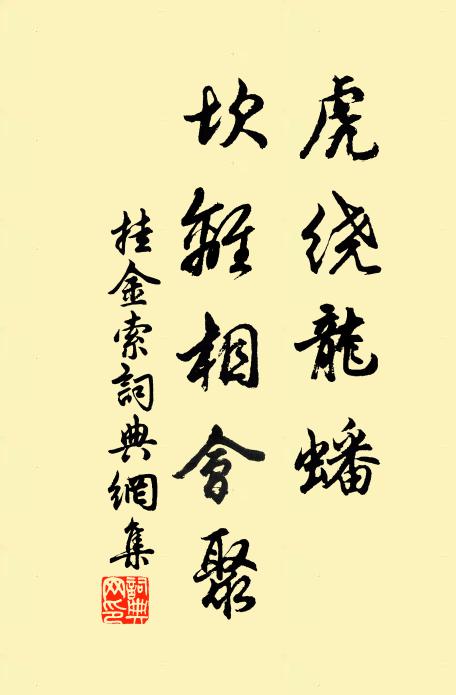 虎绕龍蟠
坎離相會聚
挂金索詞典網集
詞典網印